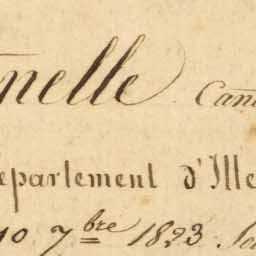 nelle Can
epartement d'Ille
10 7bre 1823